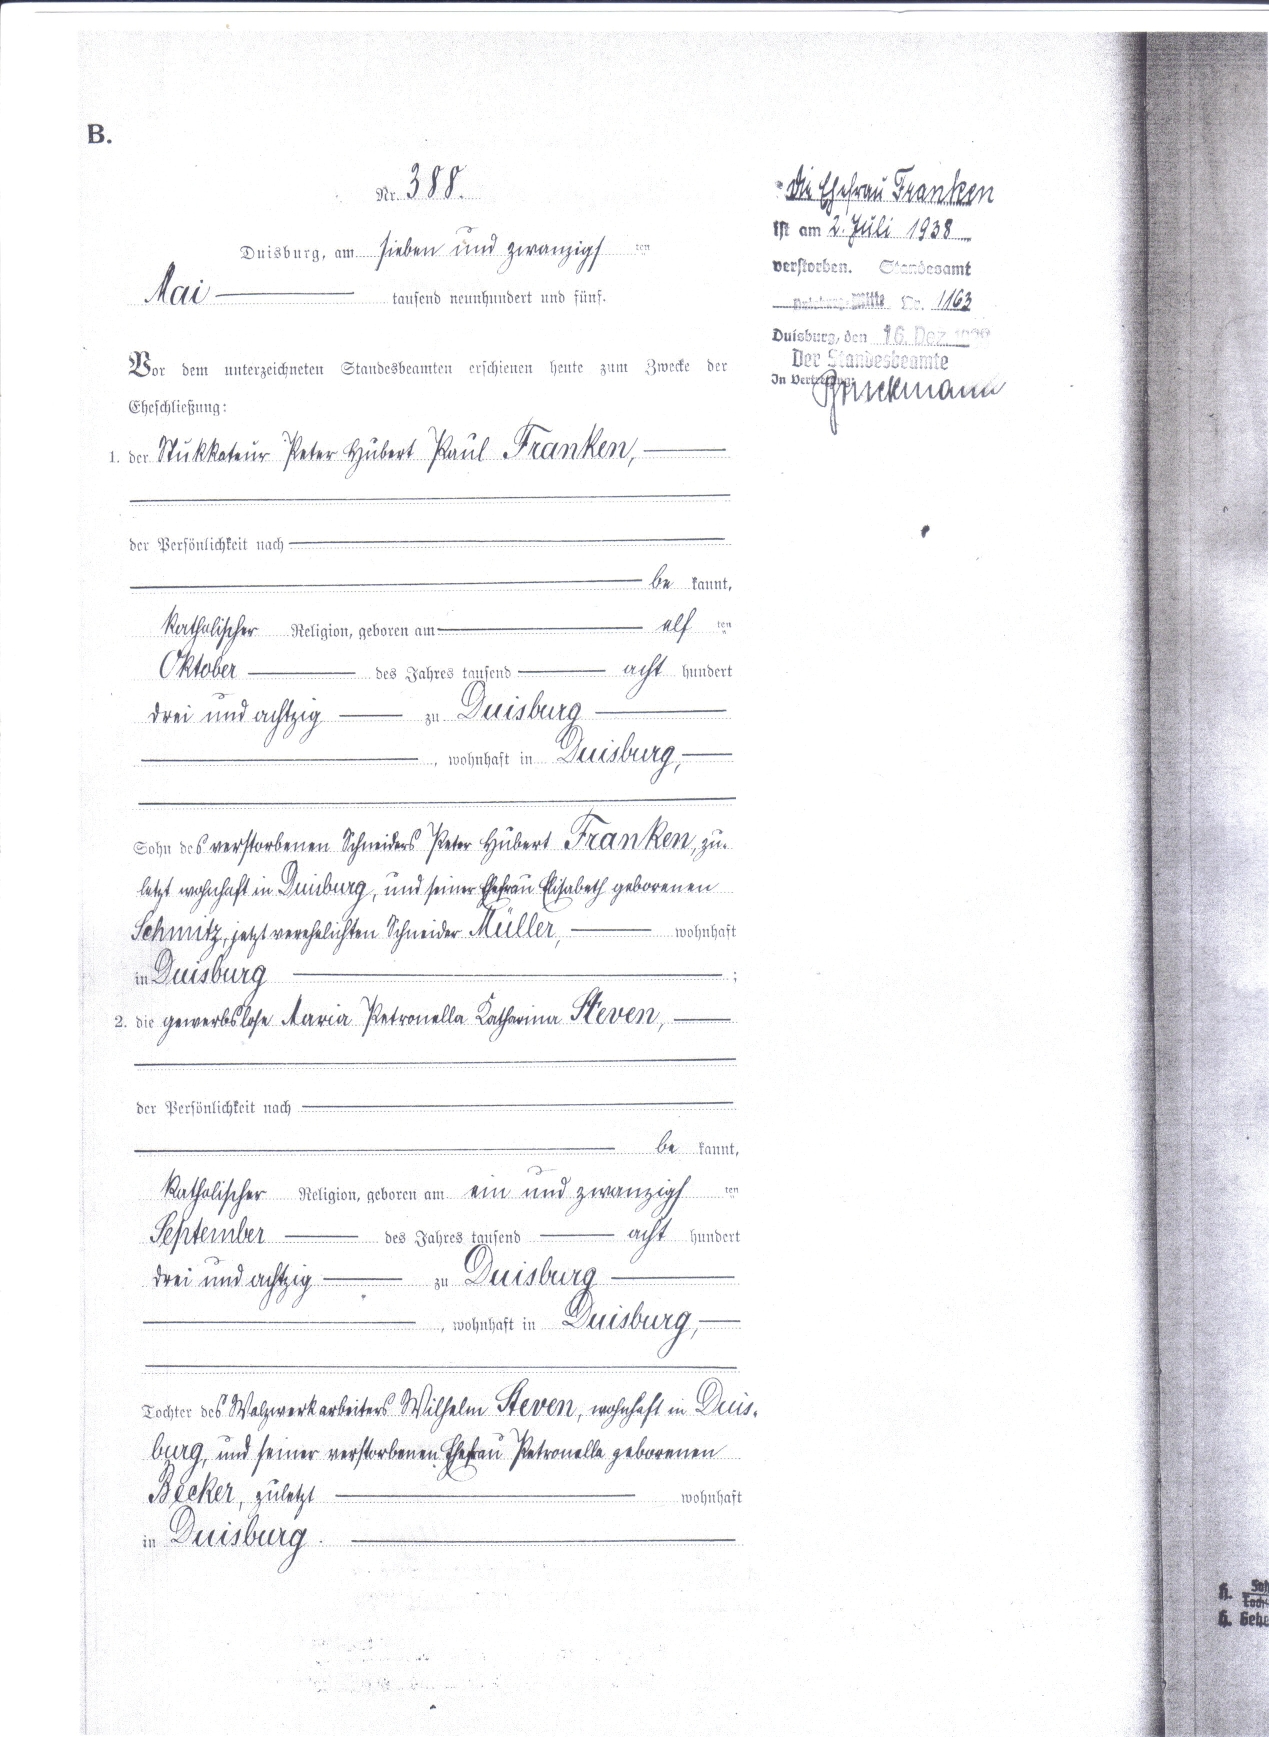 B.
Nr. 388.
Duisburg, am sieben und zwanzigs ten
Mai tausend neunhundert und fünf.
Vor dem unterzeichneten Standesbeamten erschienen heute zum Zwecke der
Eheschließung:
1. der Stukkateur Peter Hubert Paul Franken,
der Persönlichkeit nach
be kannt,
katholischer Religion, geboren am elf ten
Oktober des Jahres tausend acht hundert
drei und achtzig zu Duisburg
, wohnhaft in Duisburg,
Sohn des verstorbenen Schneiders Peter Hubert Franken, zu-
letzt wohnhaft in Duisburg, und seiner Ehefrau Elisabeth geborenen
Schmitz, jetzt verehelichten Schneider Müller, wohnhaft
in Duisburg ;
2. die gewerbslose Maria Petronella Katharina Steven,
der Persönlichkeit nach
be kannt,
katholischer Religion, geboren am ein und zwanzigs ten
September des Jahres tausend acht hundert
drei und achtzig zu Duisburg
, wohnhaft in Duisburg,
Tochter des Walzwerkarbeiters Wilhelm Steven, wohnhaft in Duis-
burg, und seiner verstorbenen Ehefrau Petronella geborenen
Becker, zuletzt wohnhaft
in Duisburg.
Die Ehefrau Franken
ist am 2. Juli 1938
verstorben. Standesamt
Duisburg-Mitte Nr. 1163
Duisburg, den 16. Dez.
Der Standesbeamte
In Vertretung:
h.
h.